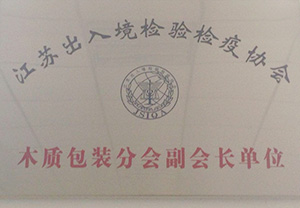 江苏出入境检验检疫协会
JSIQA
木质包装分会副会长单位